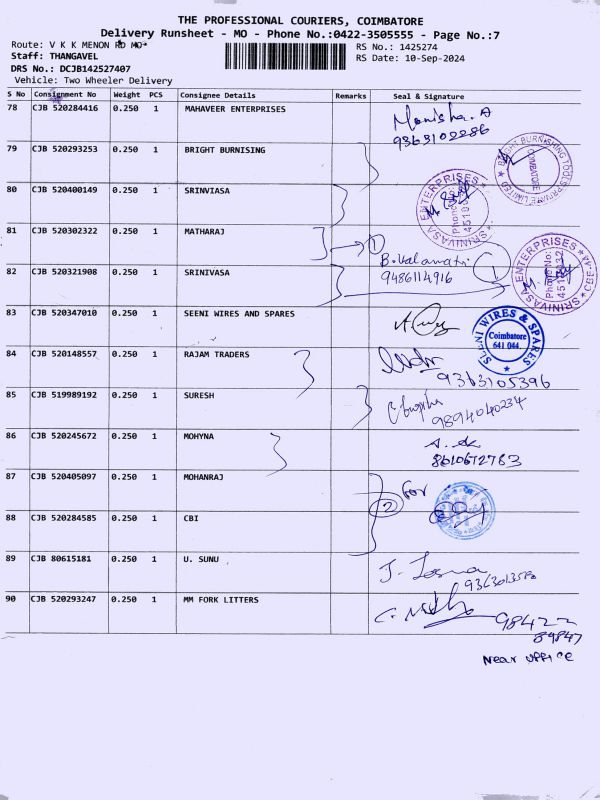 THE PROFESSIONAL COURIERS, COIMBATORE
Delivery Runsheet - MO - Phone No.:0422-3505555 - Page No.:7
Route: V K K MENON RD MO*
RS No.: 1425274
Staff: THANGAVEL
RS Date: 10-Sep-2024
DRS No.: DCJB142527407
Vehicle: Two Wheeler Delivery
S No Consignment No Weight PCS Consignee Details Remarks Seal & Signature
78 CJB 520284416 0.250 1 MAHAVEER ENTERPRISES Monisha. A
9363102286
79 CJB 520293253 0.250 1 BRIGHT BURNISING
BRIGHT BURNISHING TOOLS PRIVATE LIMITED COIMBATORE
80 CJB 520400149 0.250 1 SRINVIASA
SRINIVASA ENTERPRISES Phone No:
81 CJB 520302322 0.250 1 MATHARAJ 1
B. Kalamatri
82 CJB 520321908 0.250 1 SRINIVASA 9486114916 1
SRINIVASA ENTERPRISES Phone No:
83 CJB 520347010 0.250 1 SEENI WIRES AND SPARES
SEENI WIRES & SPARES Coimbatore 641 044.
84 CJB 520148557 0.250 1 RAJAM TRADERS
9363105396
85 CJB 519989192 0.250 1 SURESH
9894040234
86 CJB 520245672 0.250 1 MOHYNA
8610672763
87 CJB 520405097 0.250 1 MOHANRAJ
2 For
88 CJB 520284585 0.250 1 CBI
89 CJB 80615181 0.250 1 U. SUNU
90 CJB 520293247 0.250 1 MM FORK LITTERS
98422
89847
Near office